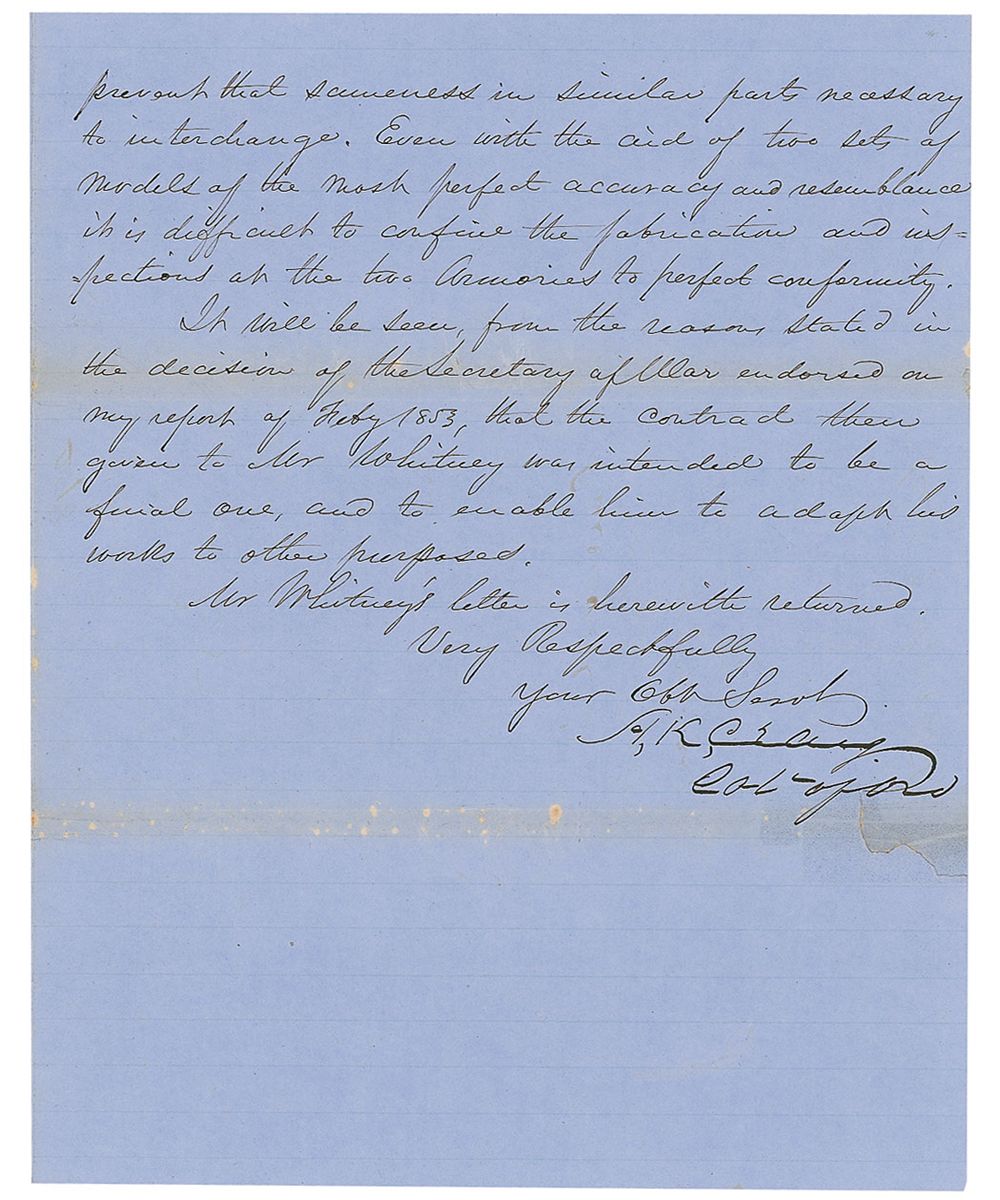 prevent that sameness in similar parts necessary
to interchange. Even with the aid of two sets of
models of the most perfect accuracy and resemblance
it is difficult to confine the fabrication and ins=
=pections at the two Armories to perfect conformity.
It will be seen, from the reasons stated in
the decision of the Secretary of War endorsed on
my report of Feby 1853, that the contract then
given to Mr Whitney was intended to be a
final one, and to enable him to adapt his
works to other purposes.
Mr Whitney's letter is herewith returned.
Very Respectfully
Your Obt Servt
H, K, Craig
Col of Ord